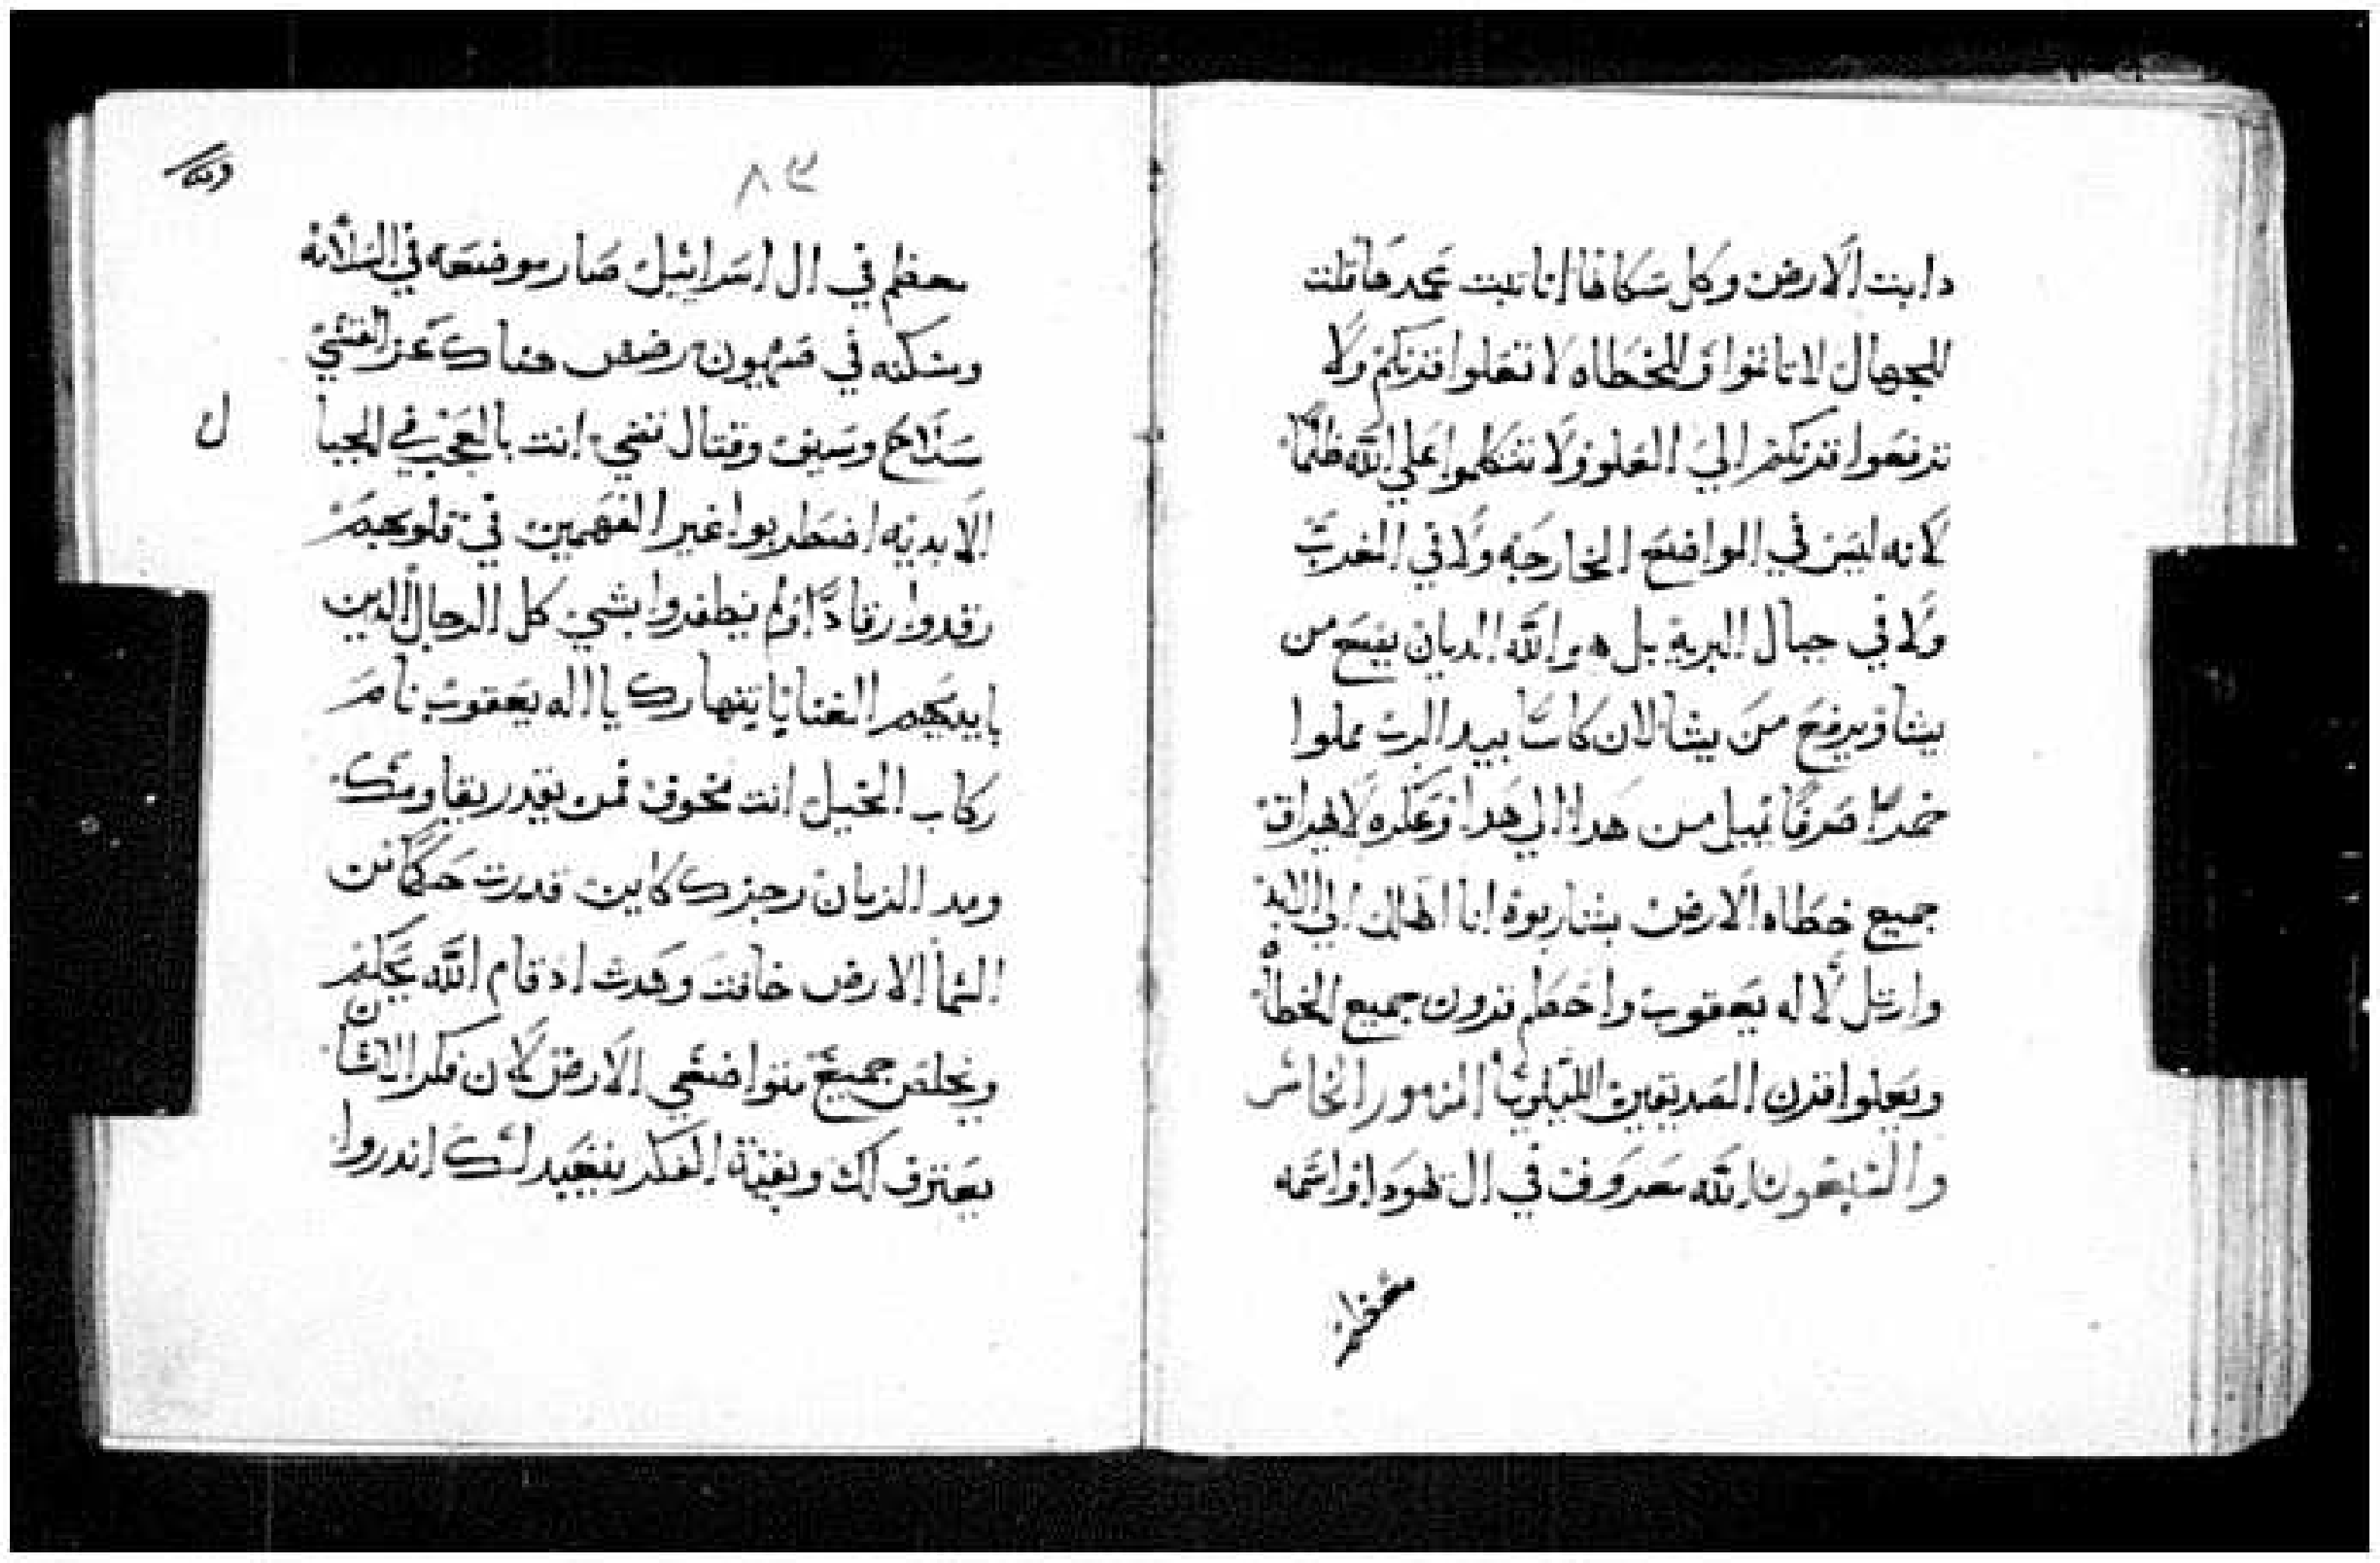 دابت الارض وكل سكانها انا تبت عمدها قلت
للجهال لا تاثموا وللخطاه لا تعلوا قرنكم ولا
ترفعوا قرنكم الي العلو ولا تتكلموا علي الله ظلمًا
لانه ليس في المواضع الخارجه ولا في المغرب
ولا في جبال البرية بل هو الله الديان يضع من
يشا ويرفع من يشا لان كاسًا بيد الرب مملوا
خمرًا صرفًا يميل من هدا الي هدا وعكره لا هراق
جميع خطاه الارض يشاربوه انا اهلل الي الابد
وارتل لاله يعقوب واحطم قرون جميع الخطاه
وتعلوا قرن الصديقين الليلويا المزمور الخامس
والسبعون الله معروف في ال يهودا واسمه
معظم
وقف
٨٣
معظم في ال اسرائيل صار موضعه في السلامه
ومسكنه في صهيون رضض هناك عز القسي
سلاح وسيف وقتال تضي انت بالعجب في الجبال
الابديه اضطربوا غير الفهمين في قلوبهم
رقدوا رقادًا ولم يظفروا بشي كل الرجال الدين
بايديهم الغنا يا بتنهارك يا اله يعقوب نام
ركاب الخيل انت مخوف فمن يقدر يقاومك
ومد الزمان رجزك كاين قدرت حكمًا من
السما الارض خافت وهدت اذ قام الله يحكم
ويخلص جميع متواضعي الارض لان فكر الانسان
يعترف لك وبقية الفكر يتعيد لك اندروا